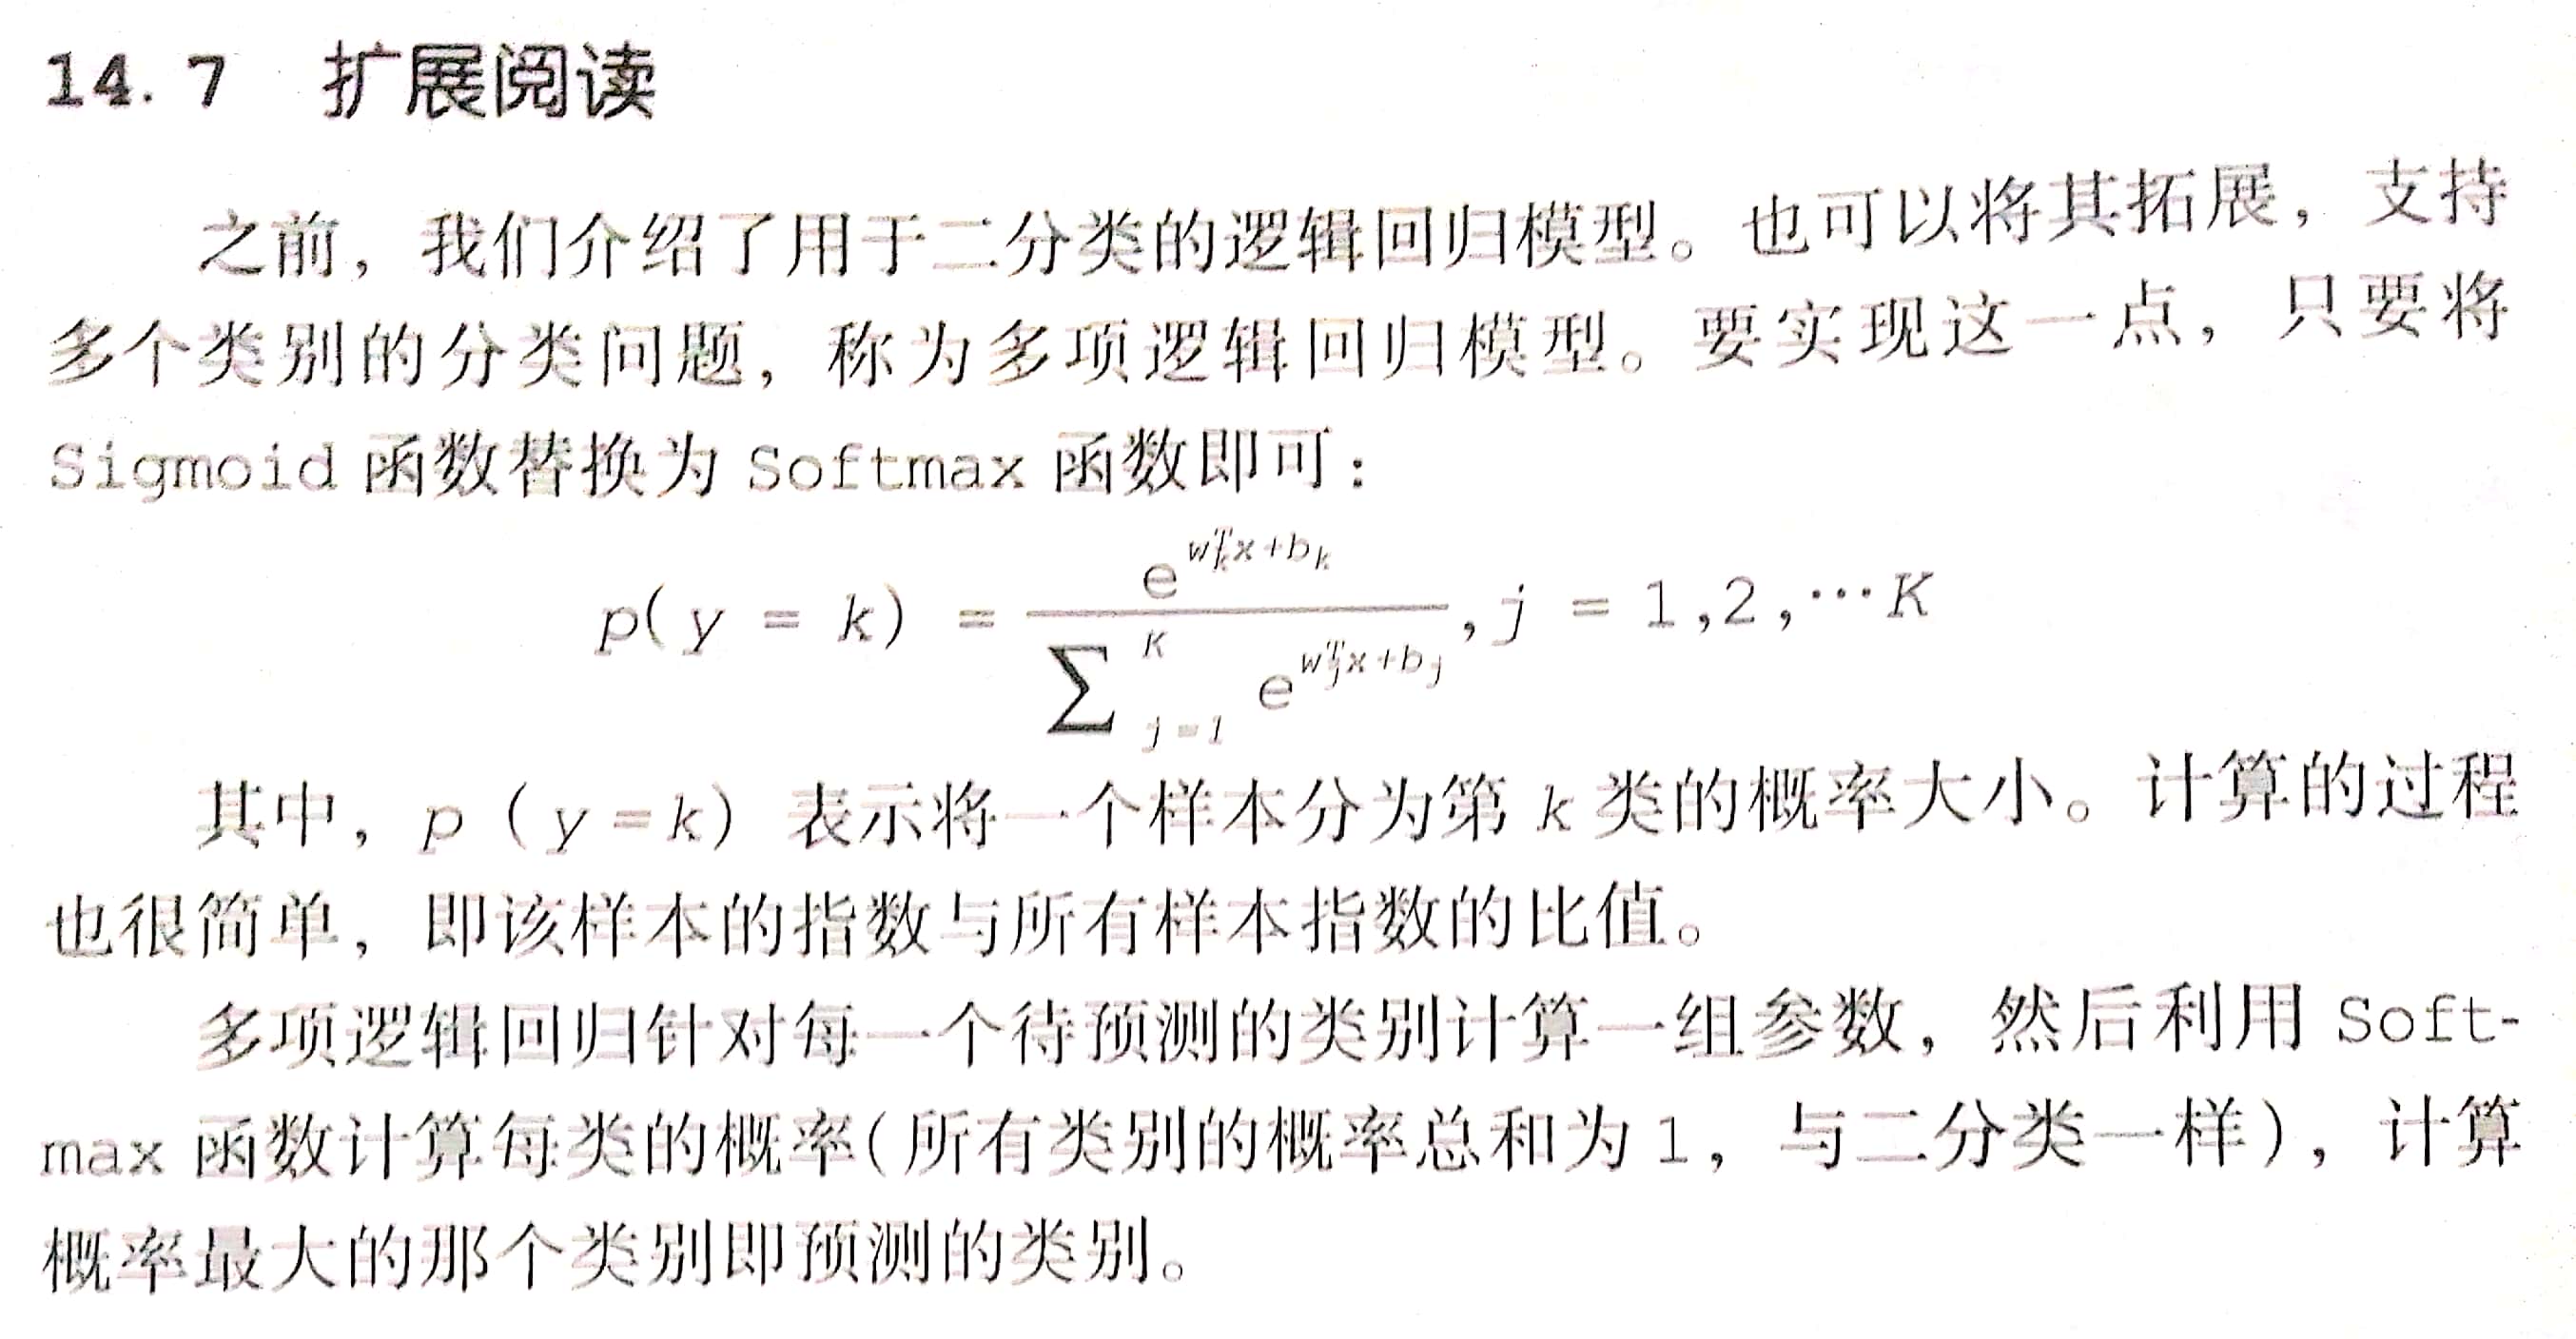 14.7 扩展阅读
之前，我们介绍了用于二分类的逻辑回归模型。也可以将其拓展，支持
多个类别的分类问题，称为多项逻辑回归模型。要实现这一点，只要将
Sigmoid 函数替换为 Softmax 函数即可：
p(y = k) = \frac{e^{w_k^T x+b_k}}{\sum_{j=1}^{K} e^{w_j^T x+b_j}}, j = 1,2,⋯K
其中，p（y=k）表示将一个样本分为第 k 类的概率大小。计算的过程
也很简单，即该样本的指数与所有样本指数的比值。
多项逻辑回归针对每一个待预测的类别计算一组参数，然后利用 Soft-
max 函数计算每类的概率(所有类别的概率总和为 1，与二分类一样)，计算
概率最大的那个类别即预测的类别。